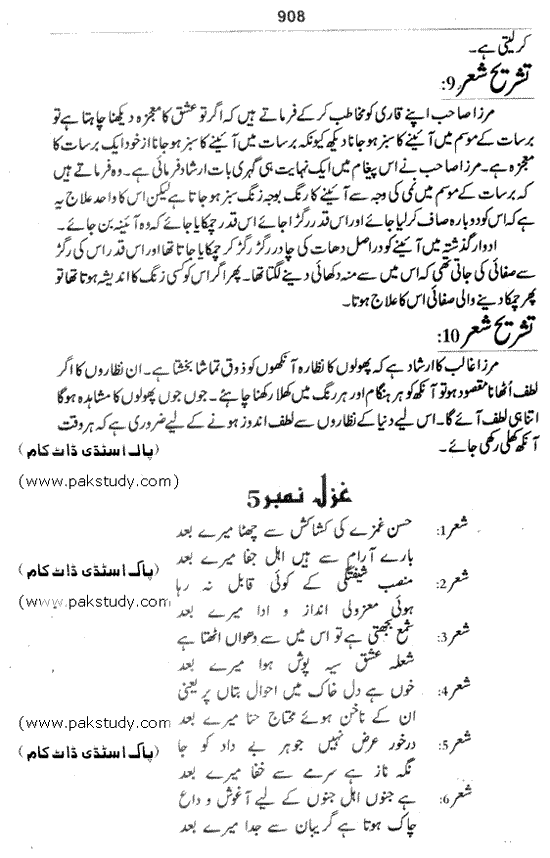 908
کر لیتی ہے۔
تشریح شعر 9:
مرزا صاحب اپنے قاری کو مخاطب کر کے فرماتے ہیں کہ اگر تو عشق کا معجزہ دیکھنا چاہتا ہے تو
برسات کے موسم میں آئینے کا سبز ہو جانا دیکھ کیونکہ برسات میں آئینے کا سبز ہو جانا از خود ایک برسات کا
معجزہ ہے۔ مرزا صاحب نے اس پیغام میں ایک نہایت ہی گہری بات ارشاد فرمائی ہے۔ وہ فرماتے ہیں
کہ برسات کے موسم میں نمی کی وجہ سے آئینے کا رنگ بوجہ زنگ سبز ہو جاتا ہے لیکن اس کا واحد علاج یہ
ہے کہ اس کو دوبارہ صاف کر لیا جائے اور اس قدر رگڑا جائے اس قدر چمکایا جائے کہ وہ آئینہ بن جائے۔
ادوار گذشتہ میں آئینے کو در اصل دھات کی چادر رگڑ رگڑ کر چمکایا جاتا تھا اور اس قدر اس کی رگڑ
سے صفائی کی جاتی تھی کہ اس میں سے منہ دکھائی دینے لگتا تھا۔ پھر اگر اس کو کسی زنگ کا اندیشہ ہوتا تھا تو
پھر چمکا دینے والی صفائی اس کا علاج ہوتا۔
تشریح شعر 10:
مرزا غالب کا ارشاد ہے کہ پھولوں کا نظارہ آنکھوں کو ذوق تماشا بخشتا ہے۔ ان نظاروں کا اگر
لطف اُٹھانا مقصود ہو تو آنکھ کو ہر ہنگام اور ہر رنگ میں کھلا رکھنا چاہئے۔ جوں جوں پھولوں کا مشاہدہ ہوگا
اتنا ہی لطف آئے گا۔ اس لیے دنیا کے نظاروں سے لطف اندوز ہونے کے لیے ضروری ہے کہ ہر وقت
آنکھ کھلی رکھی جائے۔
(پاک اسٹڈی ڈاٹ کام)
(www.pakstudy.com)
غزل نمبر 5
شعر 1: حسن غمزے کی کشاکش سے چھٹا میرے بعد
بارے آرام سے ہیں اہل جفا میرے بعد
(پاک اسٹڈی ڈاٹ کام)
شعر 2: منصب شیفتگی کے کوئی قابل نہ رہا
(www.pakstudy.com
ہوئی معزولی انداز و ادا میرے بعد
شعر 3: شمع بجھتی ہے تو اس میں سے دھواں اٹھتا ہے
شعلہ عشق سیہ پوش ہوا میرے بعد
شعر 4: خوں ہے دل خاک میں احوال بتاں پر یعنی
ان کے ناخن ہوئے محتاج حنا میرے بعد
(www.pakstudy.com
شعر 5: درخور عرض نہیں جوہر بے داد کو جا
(پاک اسٹڈی ڈاٹ کام)
نگہ ناز ہے سرمے سے خفا میرے بعد
شعر 6: ہے جنوں اہل جنوں کے لیے آغوش و داع
چاک ہوتا ہے گریباں سے جدا میرے بعد